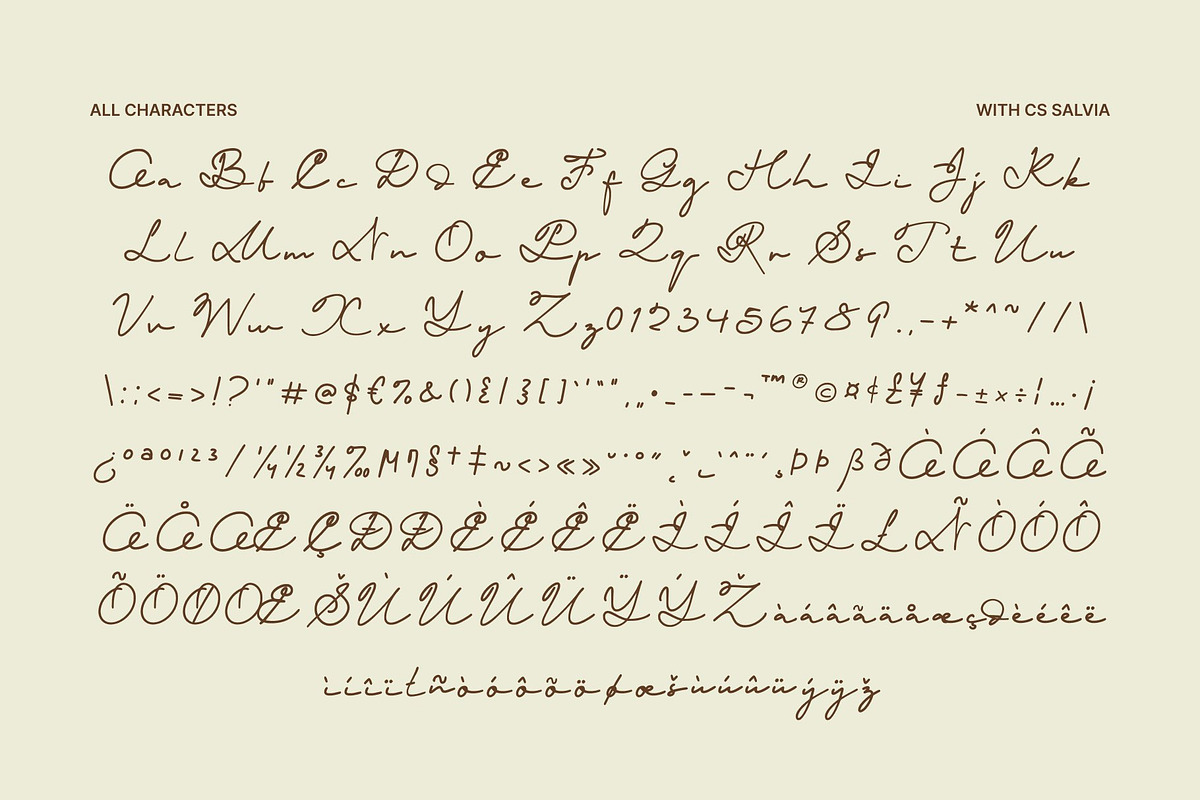 ALL CHARACTERS
WITH CS SALVIA
Aa Bb Cc Dd Ee Ff Gg Hh Ii Jj Kk
Ll Mm Nn Oo Pp Qq Rr Ss Tt Uu
Vv Ww Xx Yy Zz 0 1 2 3 4 5 6 7 8 9 . , - + * ^ ~ / / \
\ : ; < = > ! ? ' " # @ $ € % & ( ) { | } [ ] ‘ ’ “ ” ‚ „ • _ – — ¯ ¬ ™ ® © ¤ ¢ £ ¥ ƒ - ± × ÷ ¦ … · ¡
¿ º ª 0 1 2 3 ⁄ ¼ ½ ¾ ‰ § † ‡ ~ < > « » ˘ ˙ ° ˝ ˛ ˇ ` ^ ¨ ´ ¸ Þ þ ß À Á Â Ã
Ä Å Æ Ç Ð Đ È É Ê Ë Ì Í Î Ï Ł Ñ Ò Ó Ô
Õ Ö Ø Œ Š Ù Ú Û Ü Ÿ Ý Ž à á â ã ä å æ ç ð è é ê ë
ì í î ï ł ñ ò ó ô õ ö ø œ š ù ú û ü ý ÿ ž